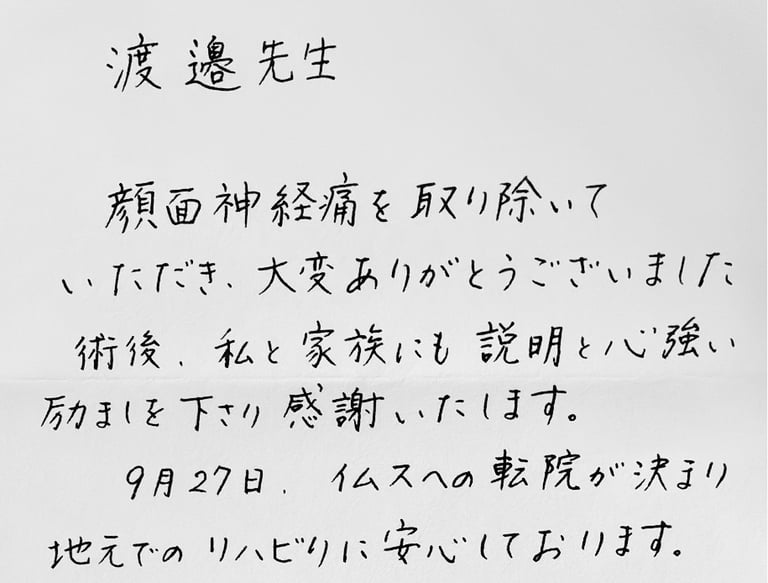 渡邉先生
顔面神経痛を取り除いて
いただき、大変ありがとうございました
術後、私と家族にも説明と心強い
励ましを下さり感謝いたします。
9月27日、イムスへの転院が決まり
地元でのリハビリに安心しております。